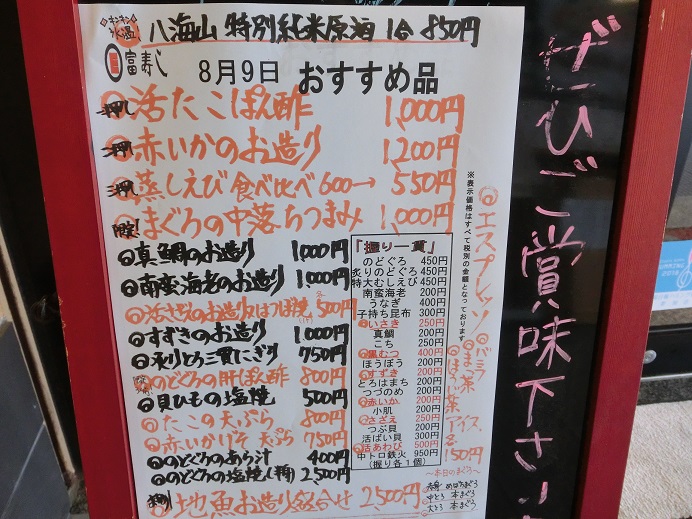 キンキン
氷温! 八海山 特別純米原酒 1合 850円
富寿し 8月9日 おすすめ品
押し 活たこぽん酢 1,000円
押し 赤いかのお造り 1,200円
押し 蒸しえび食べ比べ 600→ 550円
限定! まぐろの中落ちつまみ 1,000円
真鯛のお造り 1,000円
南蛮海老のお造り 1,000円
500円
すずきのお造り 1,000円
炙りとろ三貫にぎり 750円
のどぐろの肝ぽん酢 800円
貝ひもの塩焼 500円
たこの天ぷら 800円
赤いかげそ天ぷら 750円
のどぐろのあら汁 400円
のどぐろの塩焼(半揃) 2,500円
地魚お造り盛合け 2,500円
「握り一貫」
のどぐろ 450円
炙りのどぐろ 450円
特大むしえび 450円
南蛮海老 200円
うなぎ 400円
子持ち昆布 300円
いさき 250円
真鯛 200円
こち 250円
黒むつ 400円
ほうぼう 200円
すずき 200円
とろはまち 200円
つづのめ 200円
赤いか 200円
小肌 200円
さざえ 250円
つぶ貝 200円
活ばい貝 300円
活あわび 500円
中トロ鉄火 950円
(握り各1個)
※表示価格はすべて税別の金額となっております
エスプレッソ
バニラ
まっ茶
ほうじ茶
アイス
150円
~本日のまぐろ~
赤身 めばちまぐろ
中とろ 本まぐろ
大とろ 本まぐろ
ぜひご賞味下さい